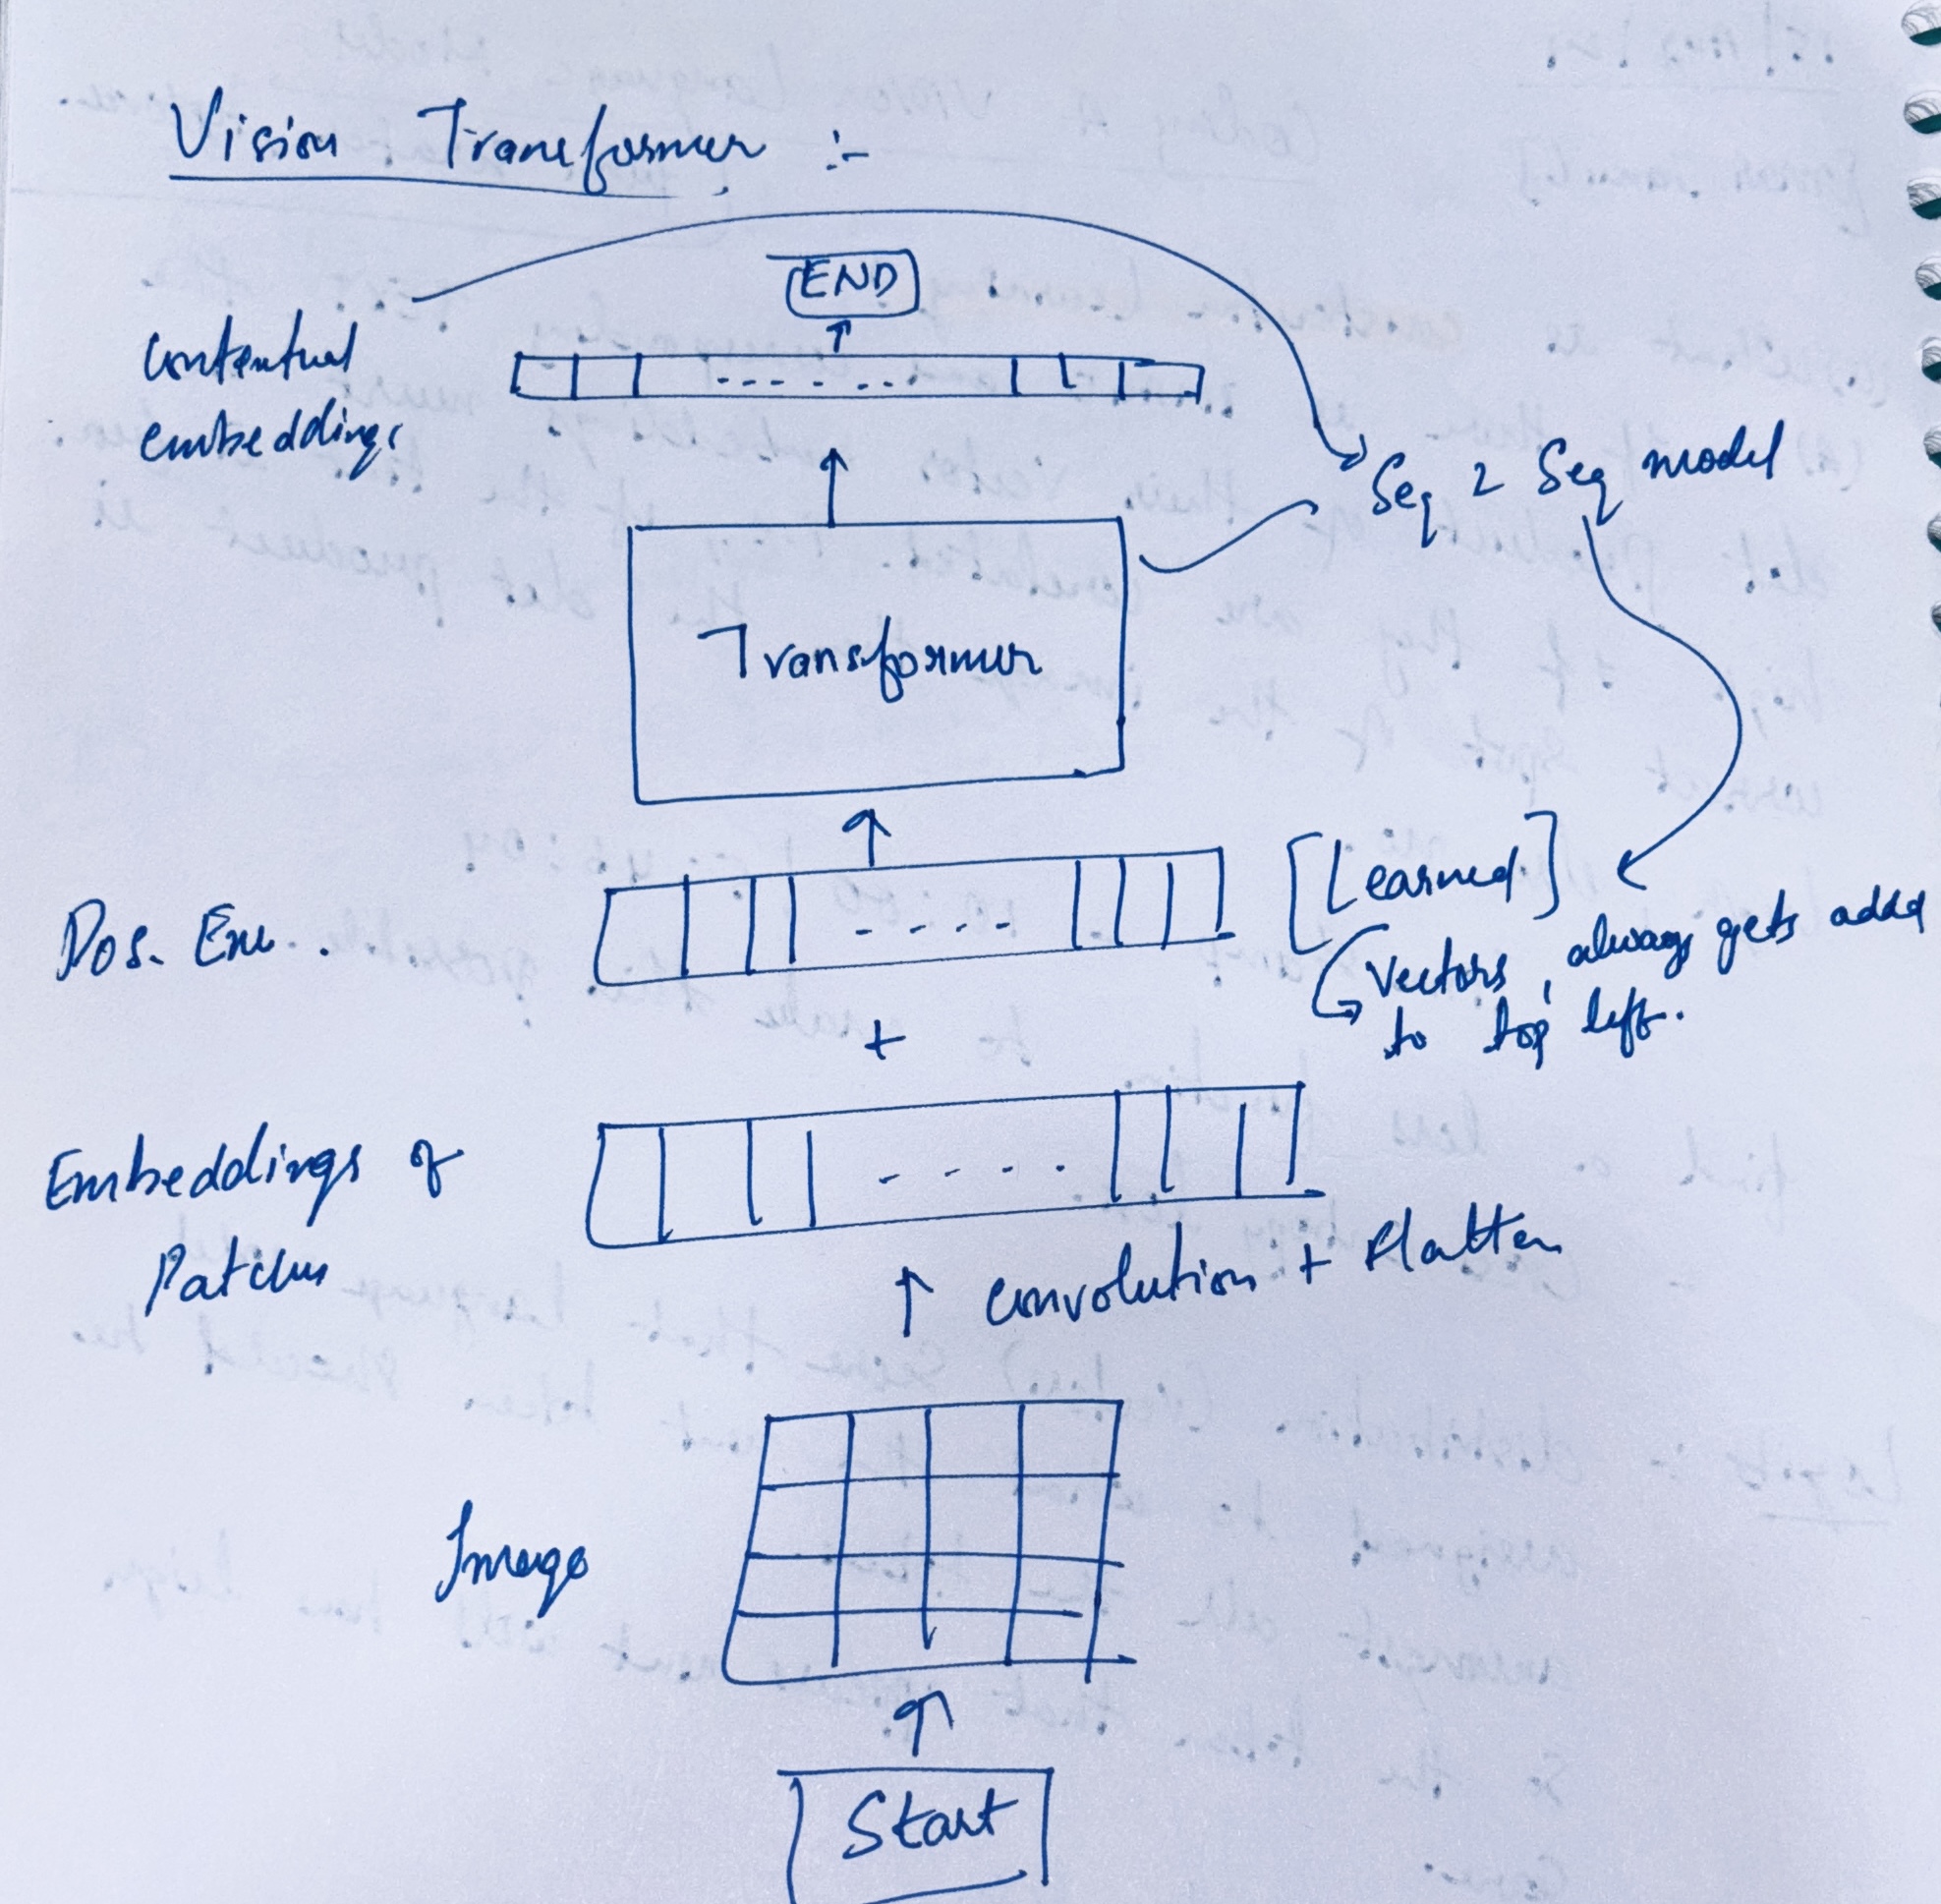 Vision Transformer :-
END
Contextual
embeddings
Seq 2 Seq model
Transformer
[Learned]
Pos. Enc.
Vectors, always gets added
to top left.
+
Embeddings of
Patches
convolution + flatten
Image
Start